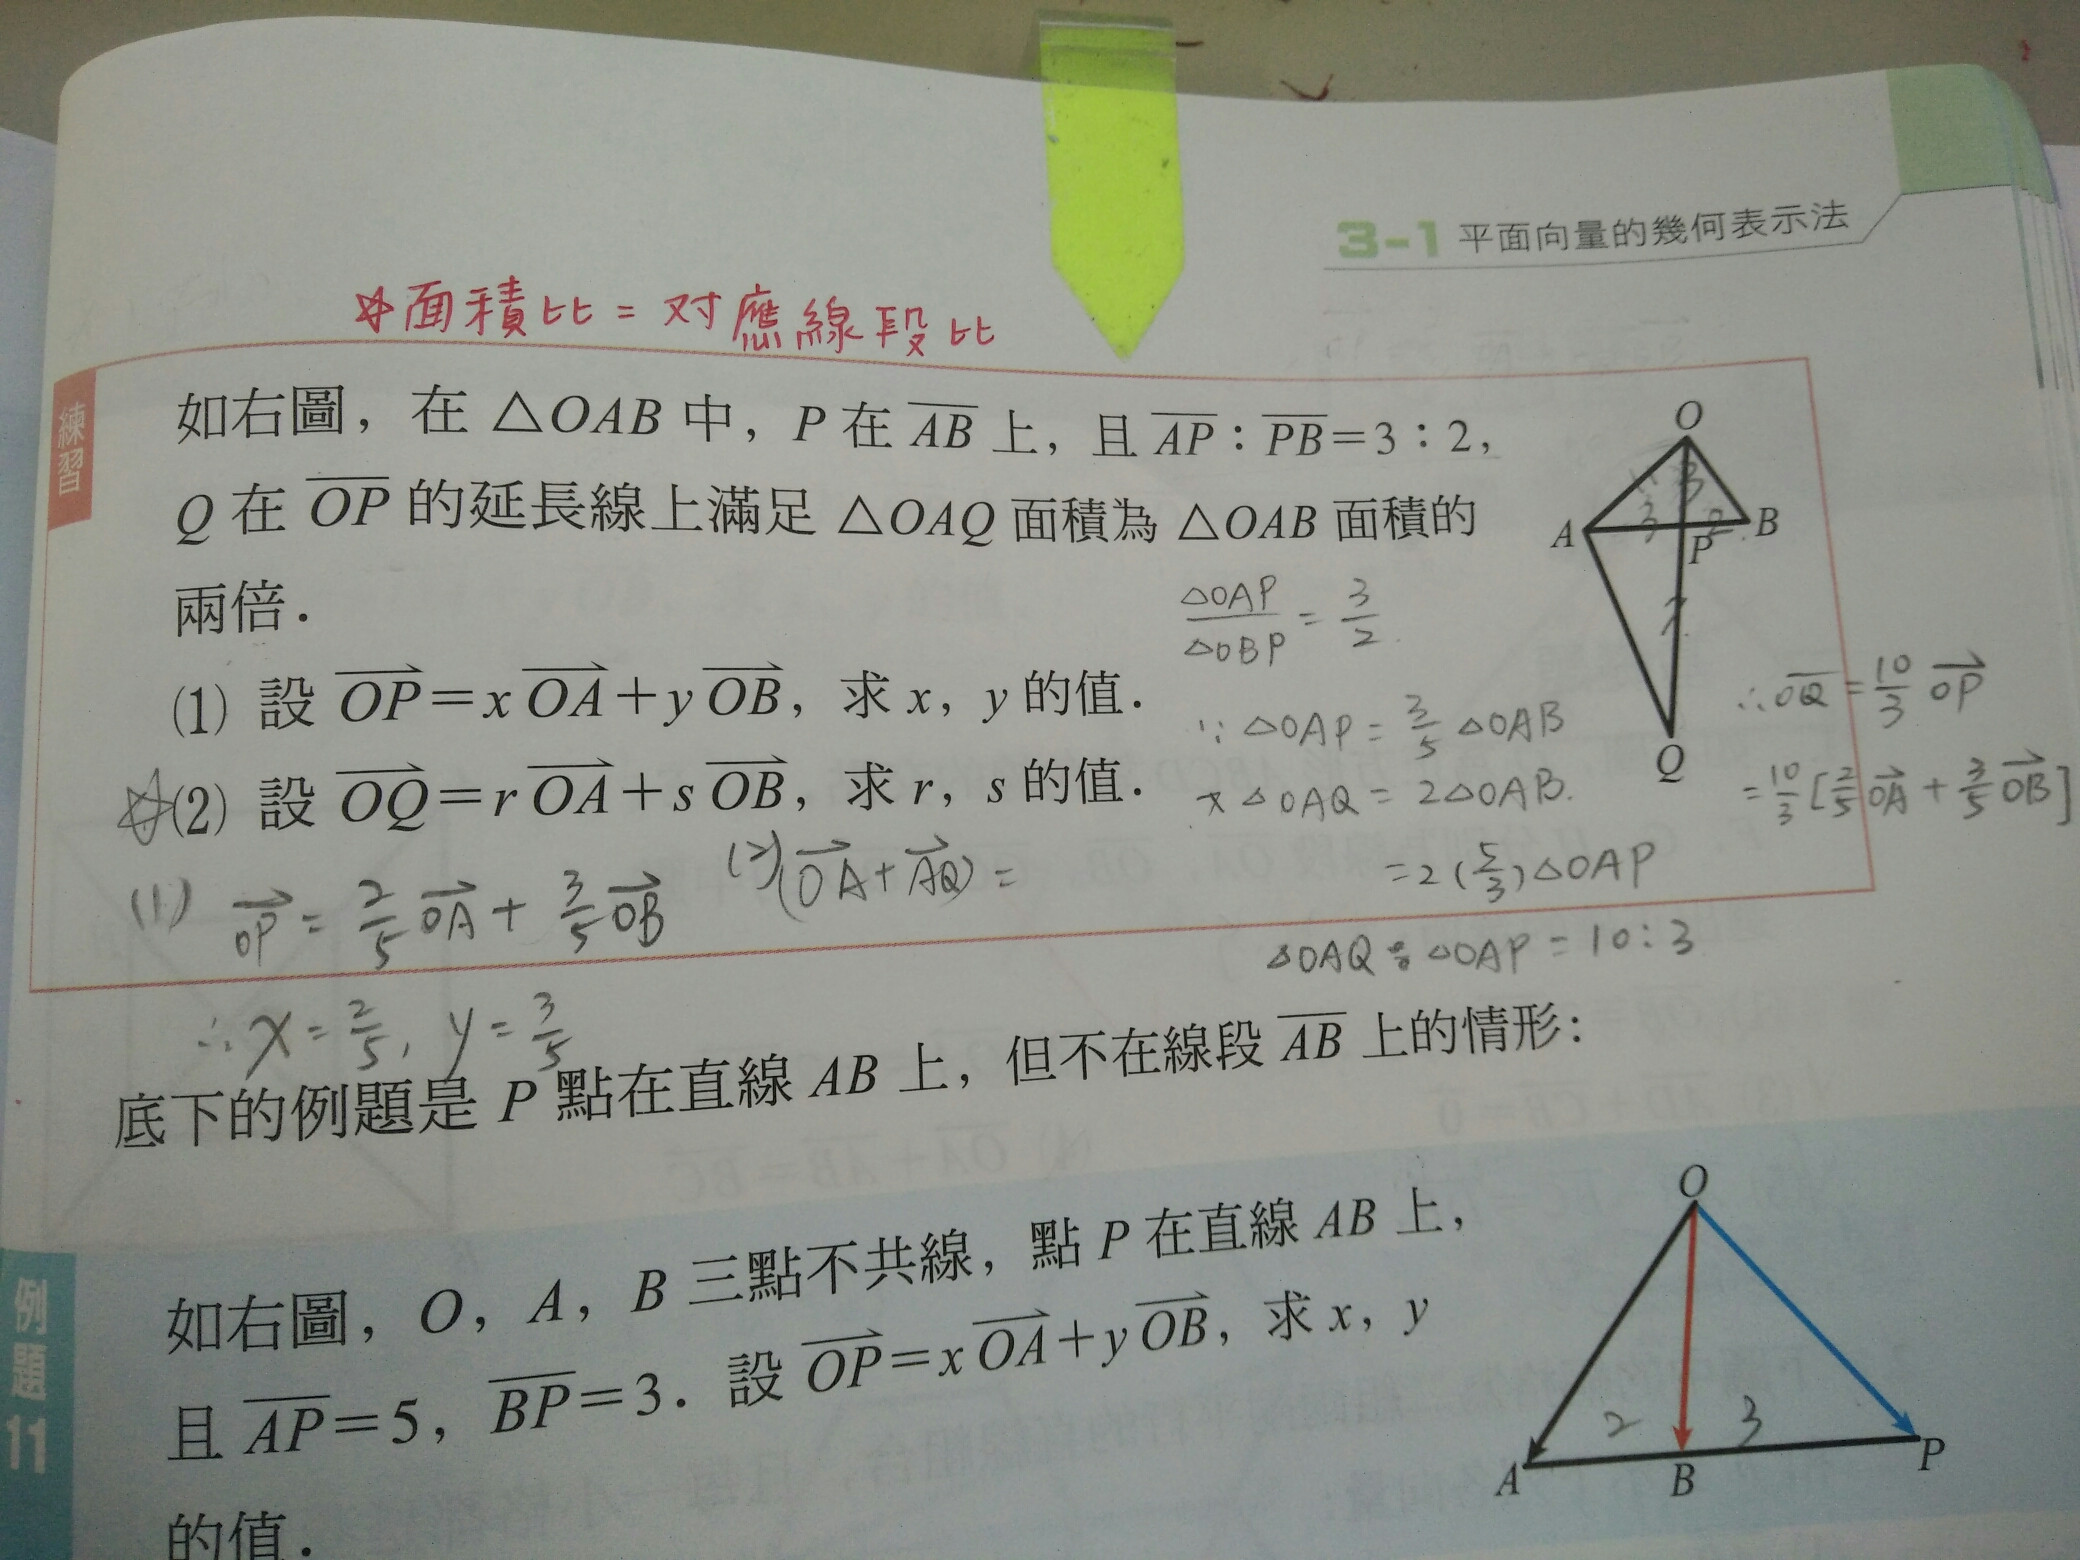 3-1 平面向量的幾何表示法
☆面積比=対應線段比
練習
如右圖，在 △OAB 中，P 在 \overline{AB} 上，且 \overline{AP}：\overline{PB}=3：2，
Q 在 \overline{OP} 的延長線上滿足 △OAQ 面積為 △OAB 面積的
兩倍．
(1) 設 \overrightarrow{OP}=x\overrightarrow{OA}+y\overrightarrow{OB}，求 x，y 的值．
☆(2) 設 \overrightarrow{OQ}=r\overrightarrow{OA}+s\overrightarrow{OB}，求 r，s 的值．
O
3
A
3
2
B
P
7
Q
△OAP/△OBP = 3/2
∵ △OAP = 3/5 △OAB
又 △OAQ = 2△OAB.
= 2(5/3)△OAP
△OAQ : △OAP = 10:3
∴ \overrightarrow{OQ} = 10/3 \overrightarrow{OP}
= 10/3 [2/5 \overrightarrow{OA} + 3/5 \overrightarrow{OB}]
(1) \overrightarrow{OP} = 2/5 \overrightarrow{OA} + 3/5 \overrightarrow{OB}
(2) (\overrightarrow{OA} + \overrightarrow{AQ}) =
∴ x = 2/5, y = 3/5
底下的例題是 P 點在直線 AB 上，但不在線段 \overline{AB} 上的情形：
例題 11
如右圖，O，A，B 三點不共線，點 P 在直線 AB 上，
且 \overline{AP}=5，\overline{BP}=3．設 \overrightarrow{OP}=x\overrightarrow{OA}+y\overrightarrow{OB}，求 x，y
的值．
O
2
3
A
B
P